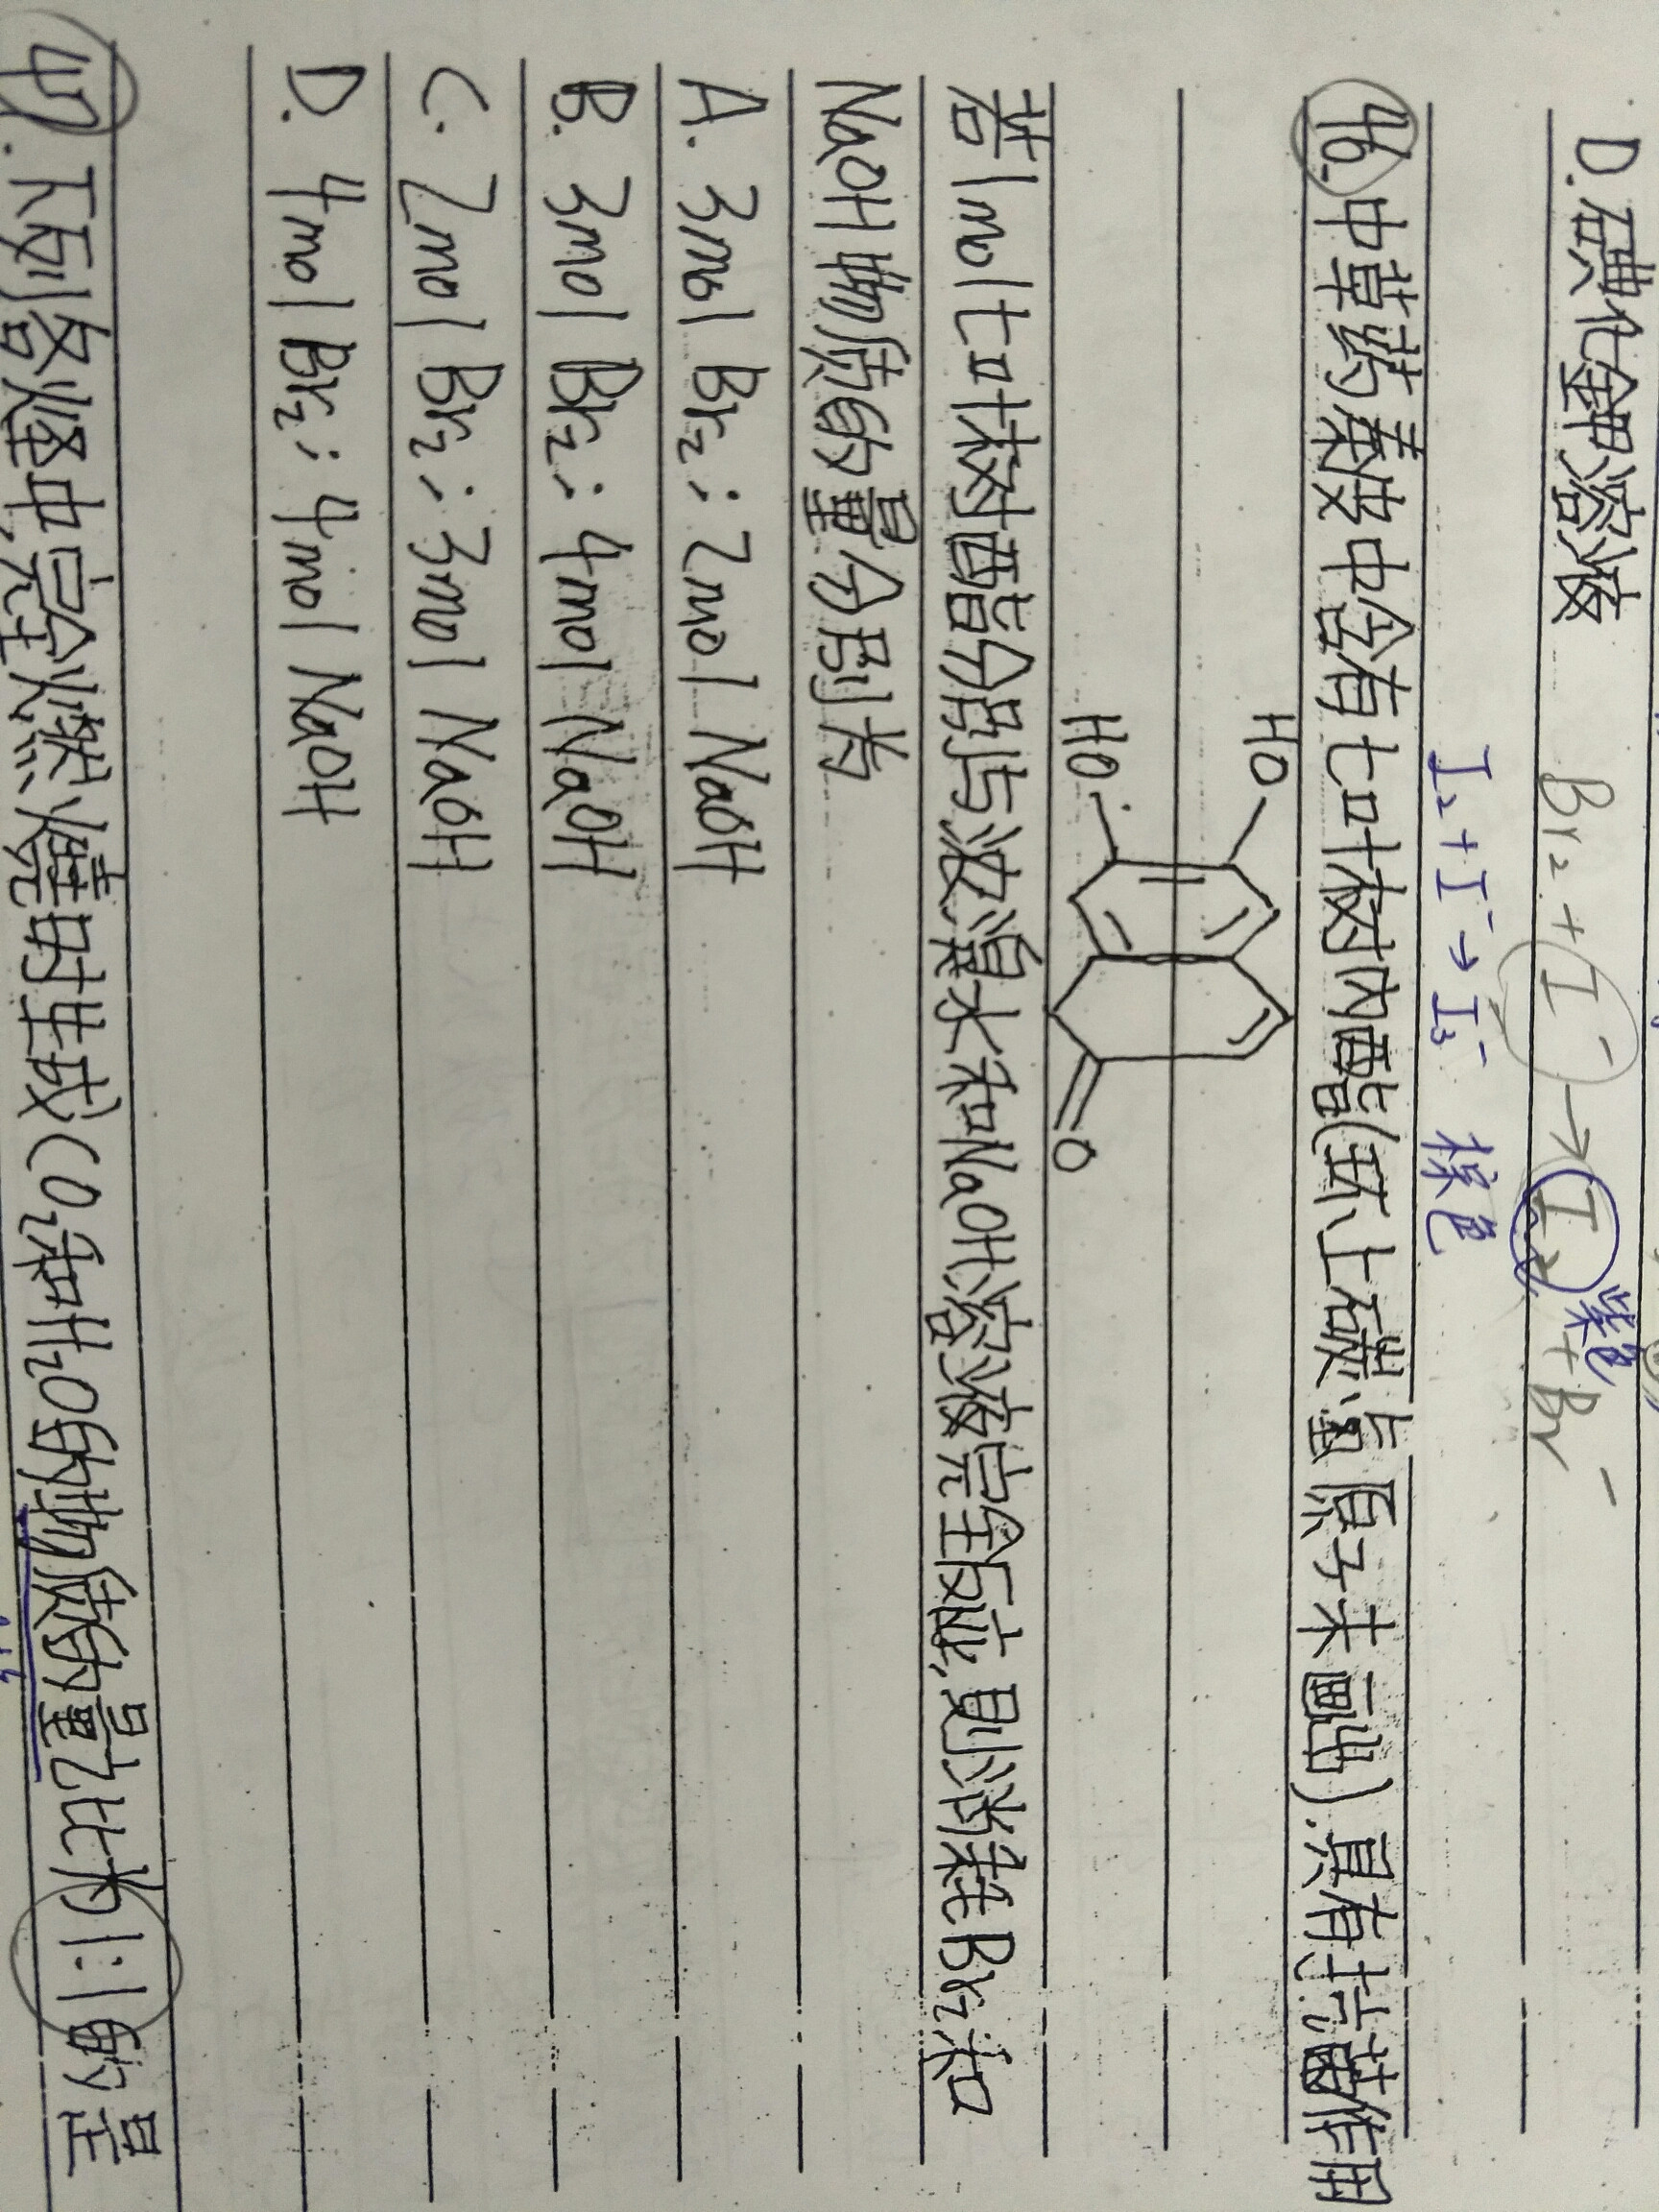 D. 碘化钾溶液 Br₂ + I⁻ → I₂ + Br⁻
紫色
I₂ + I⁻ → I₃⁻ 棕色
46. 中草药秦皮中含有七叶树内酯(环上碳与氢原子未画出).具有抗菌作用
HO
HO
O
若1mol七叶树内酯分别与浓溴水和NaOH溶液完全反应,则消耗Br₂和
NaOH物质的量分别为
A. 3mol Br₂; 2mol NaOH
B. 3mol Br₂; 4mol NaOH
C. 2mol Br₂; 3mol NaOH
D. 4mol Br₂; 4mol NaOH
47. 下列各烃中完全燃烧时生成CO₂和H₂O的物质的量之比为1:1的是